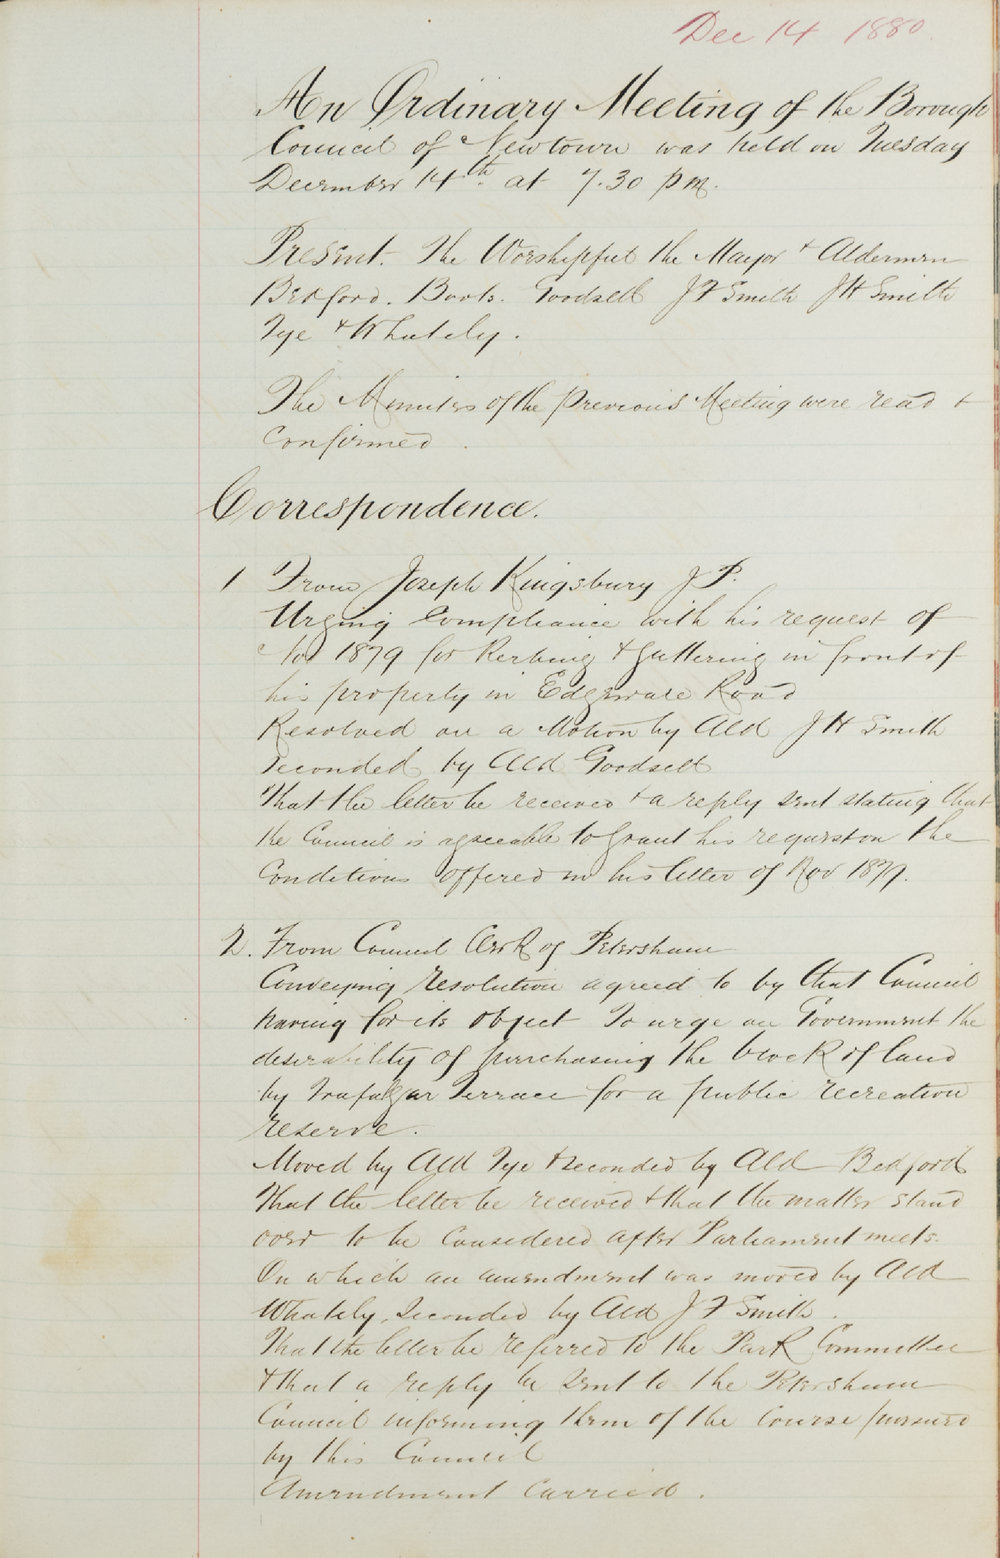 Dec 14 1880.
An Ordinary Meeting of the Borough
Council of Newtown was held on Tuesday
December 14th. at 7.30 pm.
Present. The Worshipful the Mayor & Aldermen
Bedford. Boots. Goodsell J F Smith J H Smith
Tye & Whately.
The Minutes of the previous Meeting were read &
confirmed.
Correspondence.
1 From Joseph Kingsbury J P.
Urging compliance with his request of
Nov 1879 for Kerbing & guttering in front of
his property in Edgeware Road
Resolved on a Motion by Ald J H Smith
seconded by Ald Goodsell
That the letter be received & a reply sent stating that
the Council is agreeable to grant his request on the
Conditions offered in his letter of Nov 1879.
2. From Council Clerk of Petersham
Conveying resolution agreed to by that Council
having for its object to urge on Government the
desirability of purchasing the block of land
by Trafalgar Terrace for a public recreation
reserve.
Moved by Ald Tye & seconded by Ald Bedford
That the letter be received & that the matter stand
over to be considered after Parliament meets.
On which an amendment was moved by Ald
Whately, seconded by Ald J F Smith.
That the letter be referred to the Park Committee
& that a reply be sent to the Petersham
Council informing them of the course pursued
by this Council
Amendment carried.